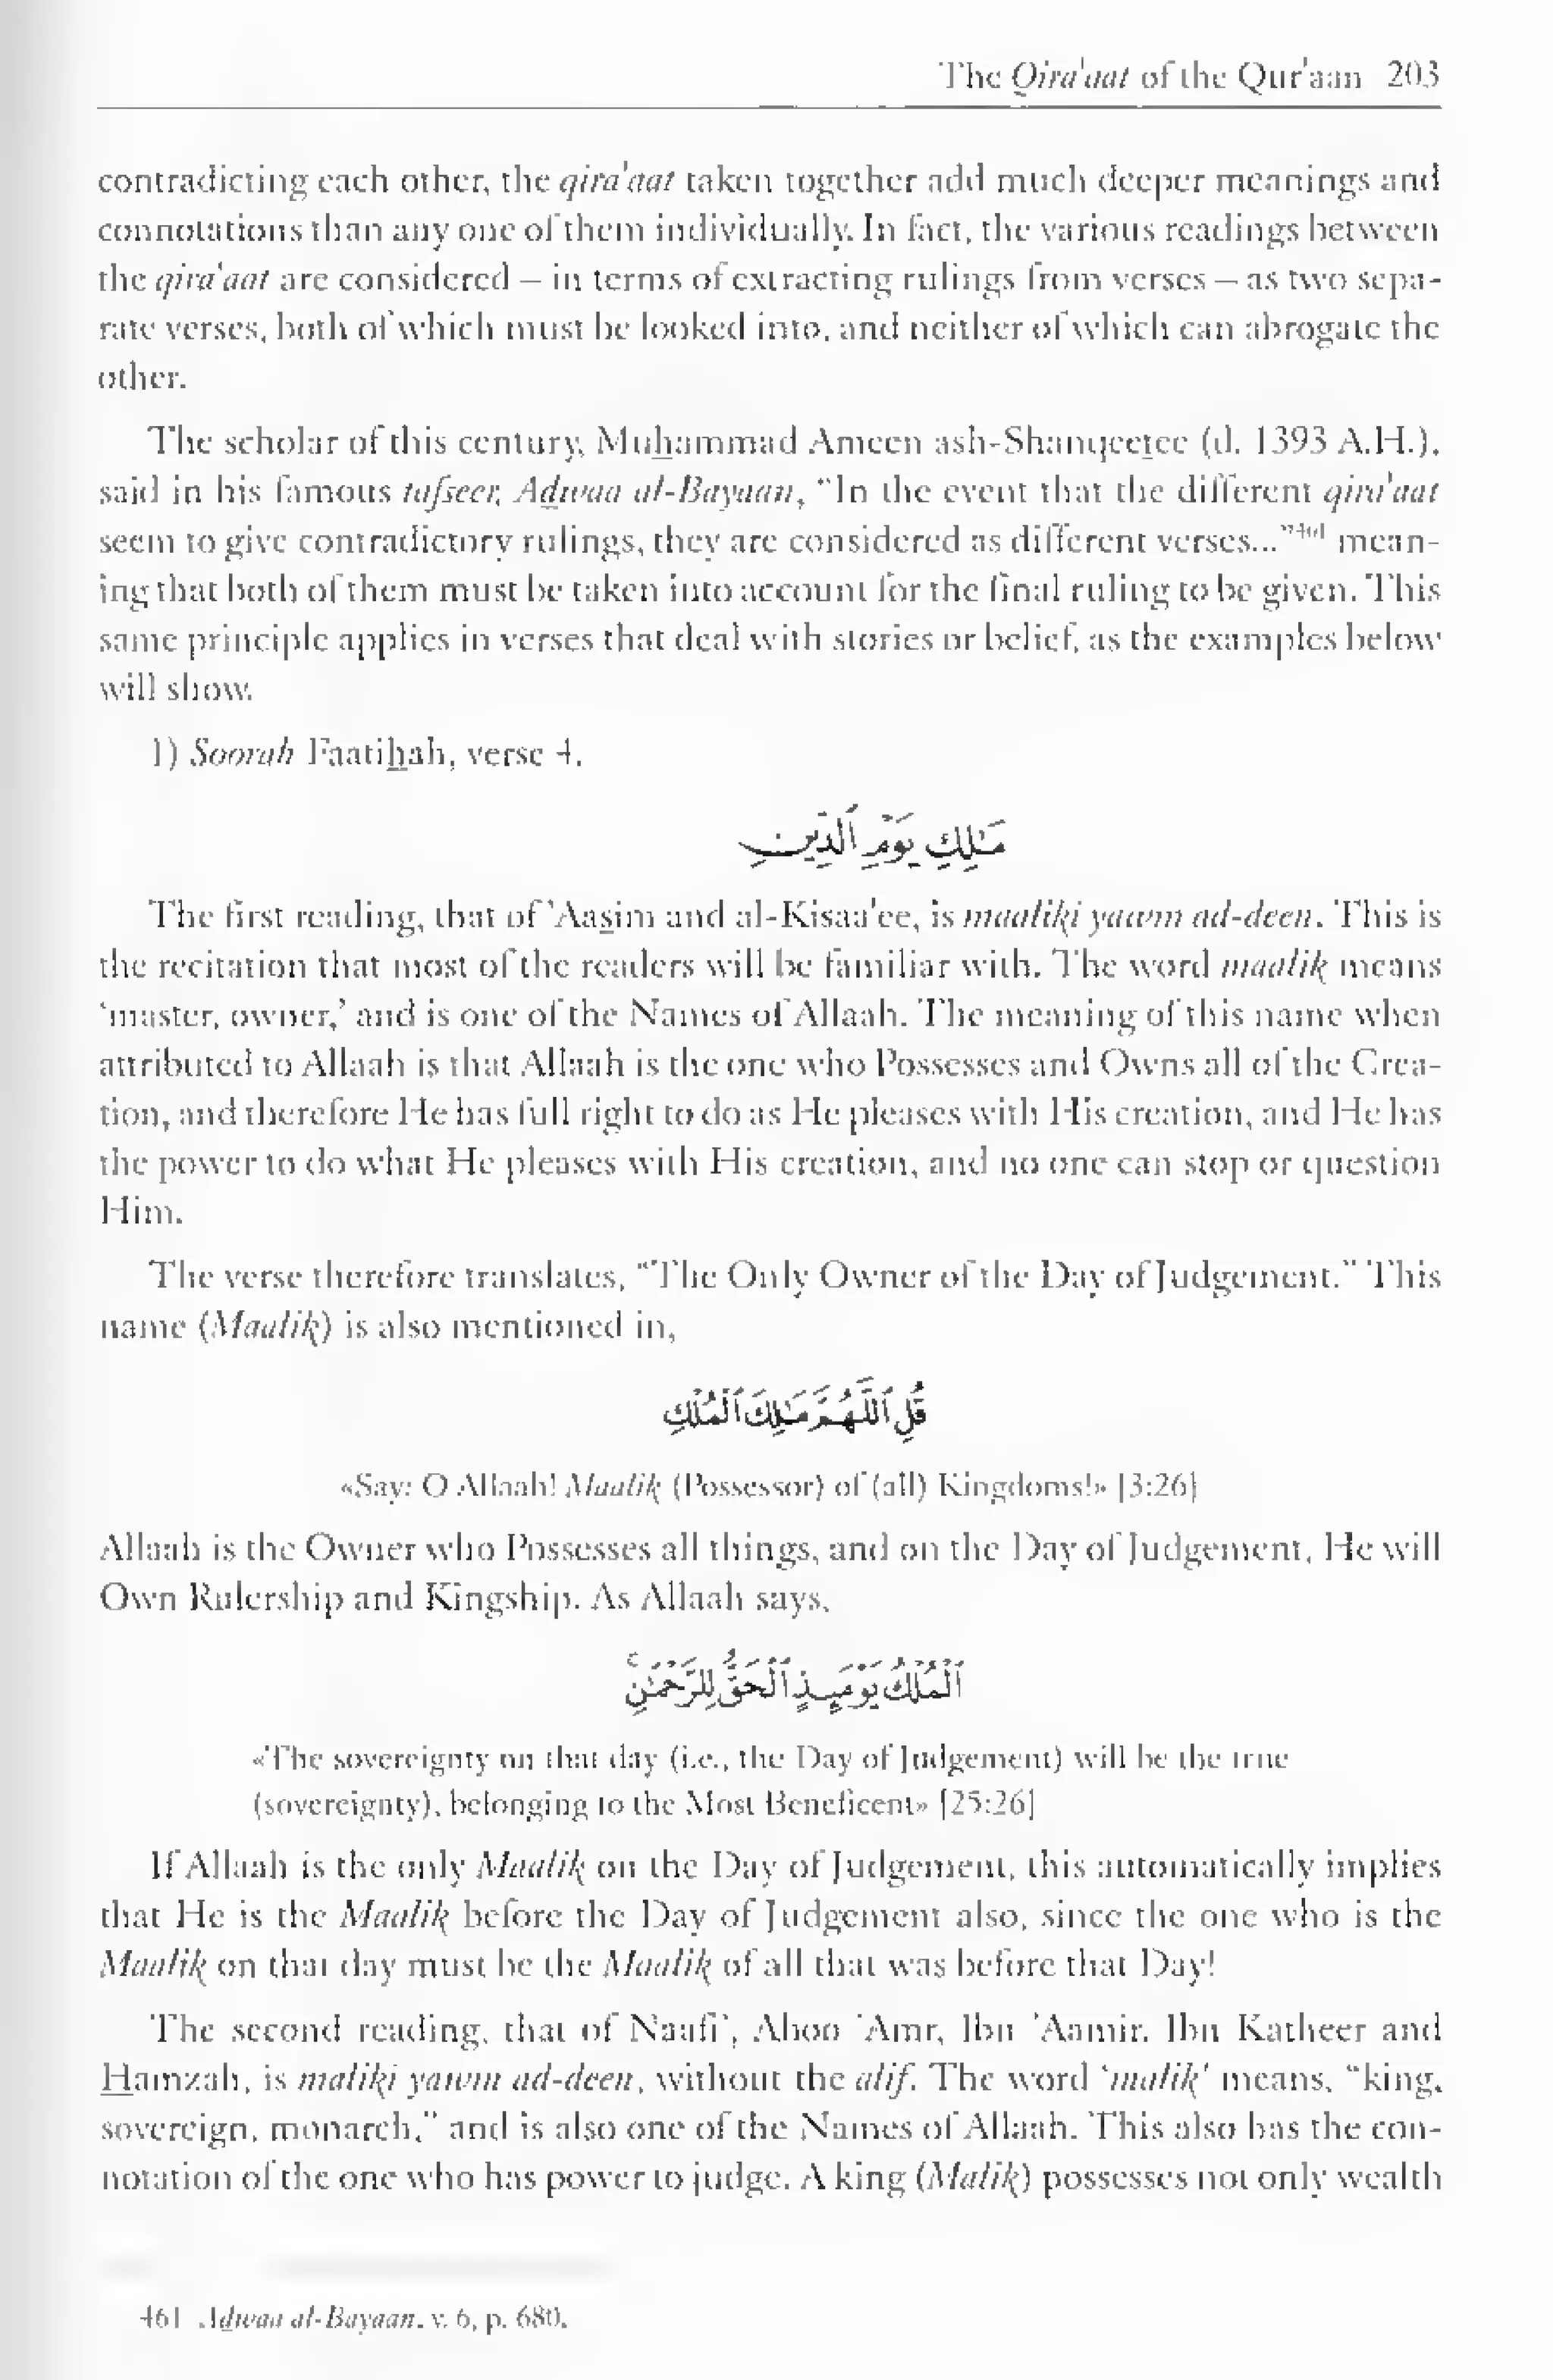 The Qira'aat of the Qur'aan 203
contradicting each other, the qira'aat taken together add much deeper meanings and
connotations than any one of them individually. In fact, the various readings between
the qira'aat are considered – in terms of extracting rulings from verses – as two sepa-
rate verses, both of which must be looked into, and neither of which can abrogate the
other.
The scholar of this century, Muḥammad Ameen ash-Shanqeeṯee (d. 1393 A.H.),
said in his famous tafseer, Aḏwaa al-Bayaan, "In the event that the different qira'aat
seem to give contradictory rulings, they are considered as different verses..."461 mean-
ing that both of them must be taken into account for the final ruling to be given. This
same principle applies in verses that deal with stories or belief, as the examples below
will show.
1) Soorah Faatiẖah, verse 4.
مَـٰلِكِ يَوْمِ ٱلدِّينِ
The first reading, that of 'Aas̱im and al-Kisaa'ee, is maaliki yaawm ad-deen. This is
the recitation that most of the readers will be familiar with. The word maalik means
'master, owner,' and is one of the Names of Allaah. The meaning of this name when
attributed to Allaah is that Allaah is the one who Possesses and Owns all of the Crea-
tion, and therefore He has full right to do as He pleases with His creation, and He has
the power to do what He pleases with His creation, and no one can stop or question
Him.
The verse therefore translates, "The Only Owner of the Day of Judgement." This
name (Maalik) is also mentioned in,
قُلِ ٱللَّهُمَّ مَـٰلِكَ ٱلْمُلْكِ
«Say: O Allaah! Maalik (Possessor) of (all) Kingdoms!» [3:26]
Allaah is the Owner who Possesses all things, and on the Day of Judgement, He will
Own Rulership and Kingship. As Allaah says,
ٱلْمُلْكُ يَوْمَئِذٍ ٱلْحَقُّ لِلرَّحْمَـٰنِ ۚ
«The sovereignty on that day (i.e., the Day of Judgement) will be the true
(sovereignty), belonging to the Most Beneficent» [25:26]
If Allaah is the only Maalik on the Day of Judgement, this automatically implies
that He is the Maalik before the Day of Judgement also, since the one who is the
Maalik on that day must be the Maalik of all that was before that Day!
The second reading, that of Naafi', Aboo 'Amr, Ibn 'Aamir, Ibn Katheer and
H̱amzah, is maliki yawm ad-deen, without the alif. The word 'malik' means, "king,
sovereign, monarch," and is also one of the Names of Allaah. This also has the con-
notation of the one who has power to judge. A king (Malik) possesses not only wealth
461 Aḏwaa al-Bayaan, v. 6, p. 680.